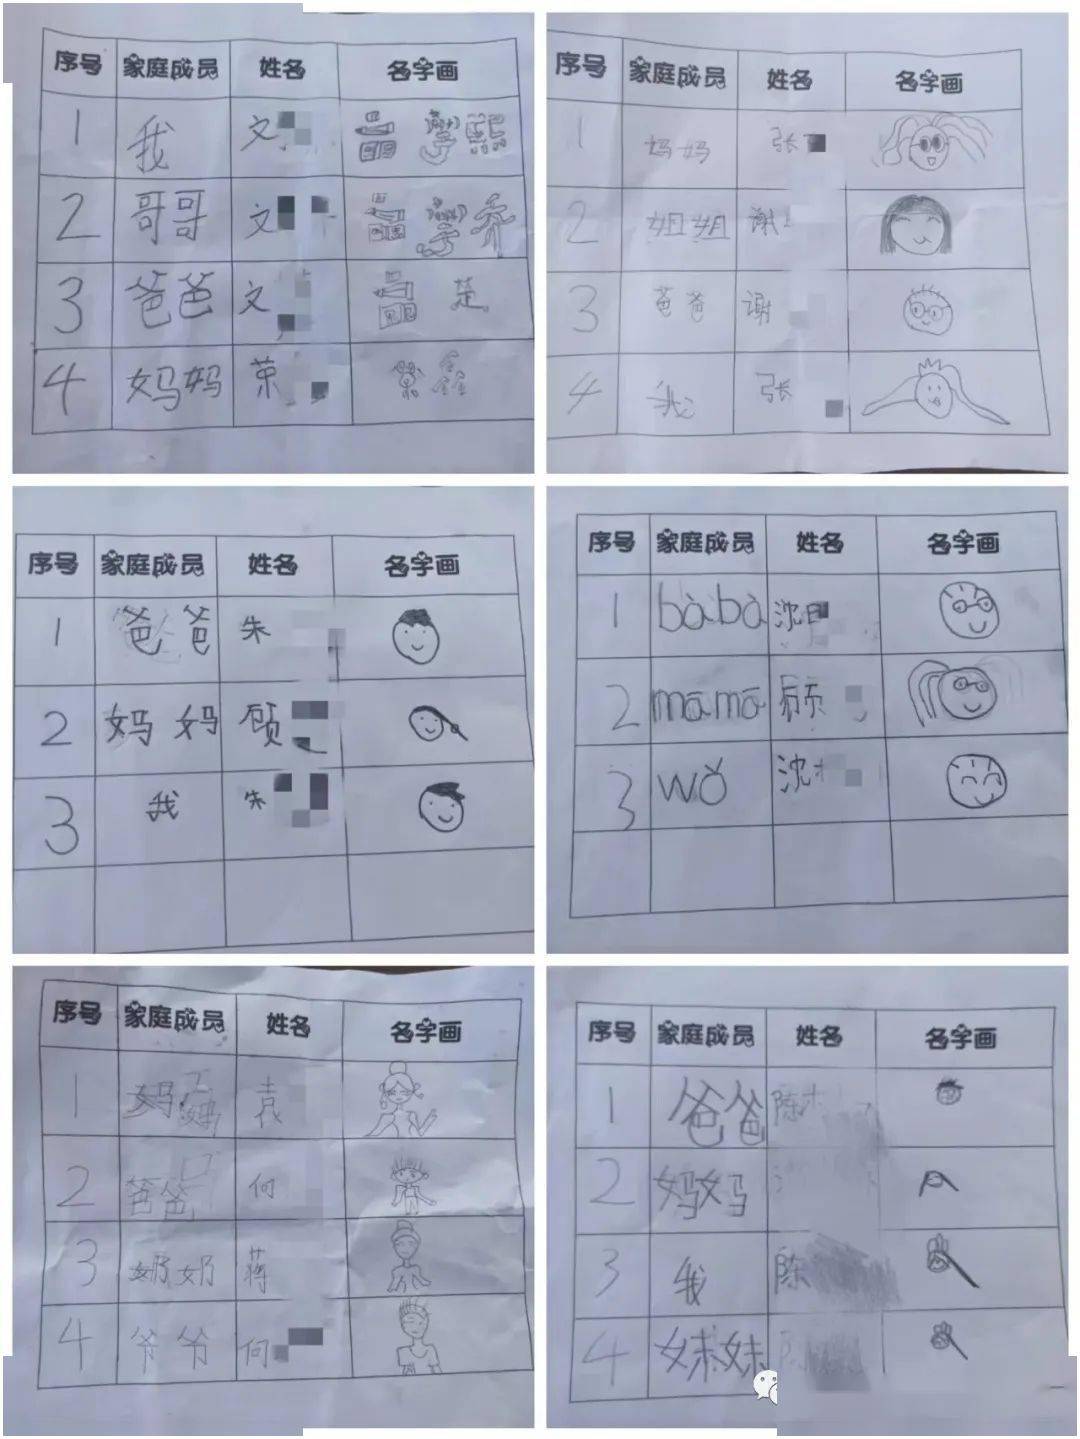 序号 家庭成员 姓名 名字画
1 我 文
2 哥哥 文
3 爸爸 文 楚
4 妈妈 荣
序号 家庭成员 姓名 名字画
1 妈妈 张
2 姐姐 谢
3 爸爸 谢
4 我 张
序号 家庭成员 姓名 名字画
1 爸爸 朱
2 妈妈 顾
3 我 朱
序号 家庭成员 姓名 名字画
1 bàbà 沈
2 māmā 顾
3 wǒ 沈
序号 家庭成员 姓名 名字画
1 妈妈 袁
2 爸爸 何
3 奶奶 蒋
4 爷爷 何
序号 家庭成员 姓名 名字画
1 爸爸 陈
2 妈妈
3 我 陈
4 妹妹